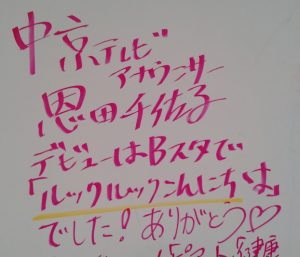 中京テレビ
アナウンサー
恩田千佐子
デビューはBスタで
「ルックルックこんにちは」
でした!ありがとう♡
健康